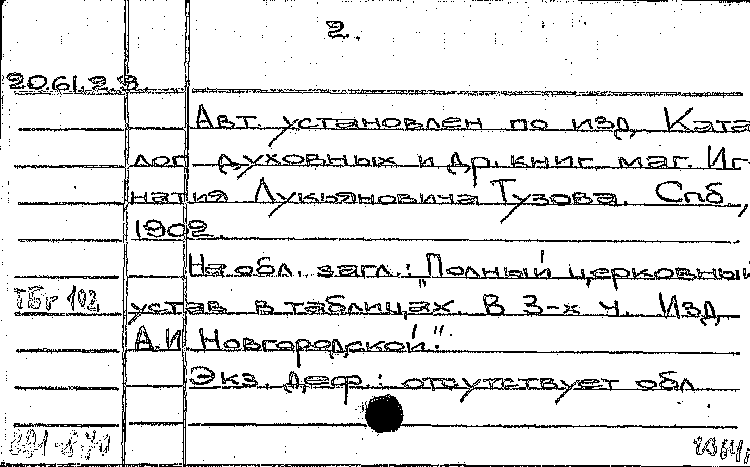 2.
20.61.2.3.
Авт. установлен по изд. Ката
лог духовных и др. книг маг. Иг-
натия Лукьяновича Тузова. Спб.,
1902.
На обл. загл.: "Полный церковный
ТБг 102 устав в таблицах. В 3-х ч. Изд.
А.И Новгородской".
Экз. деф.: отсутствует обл